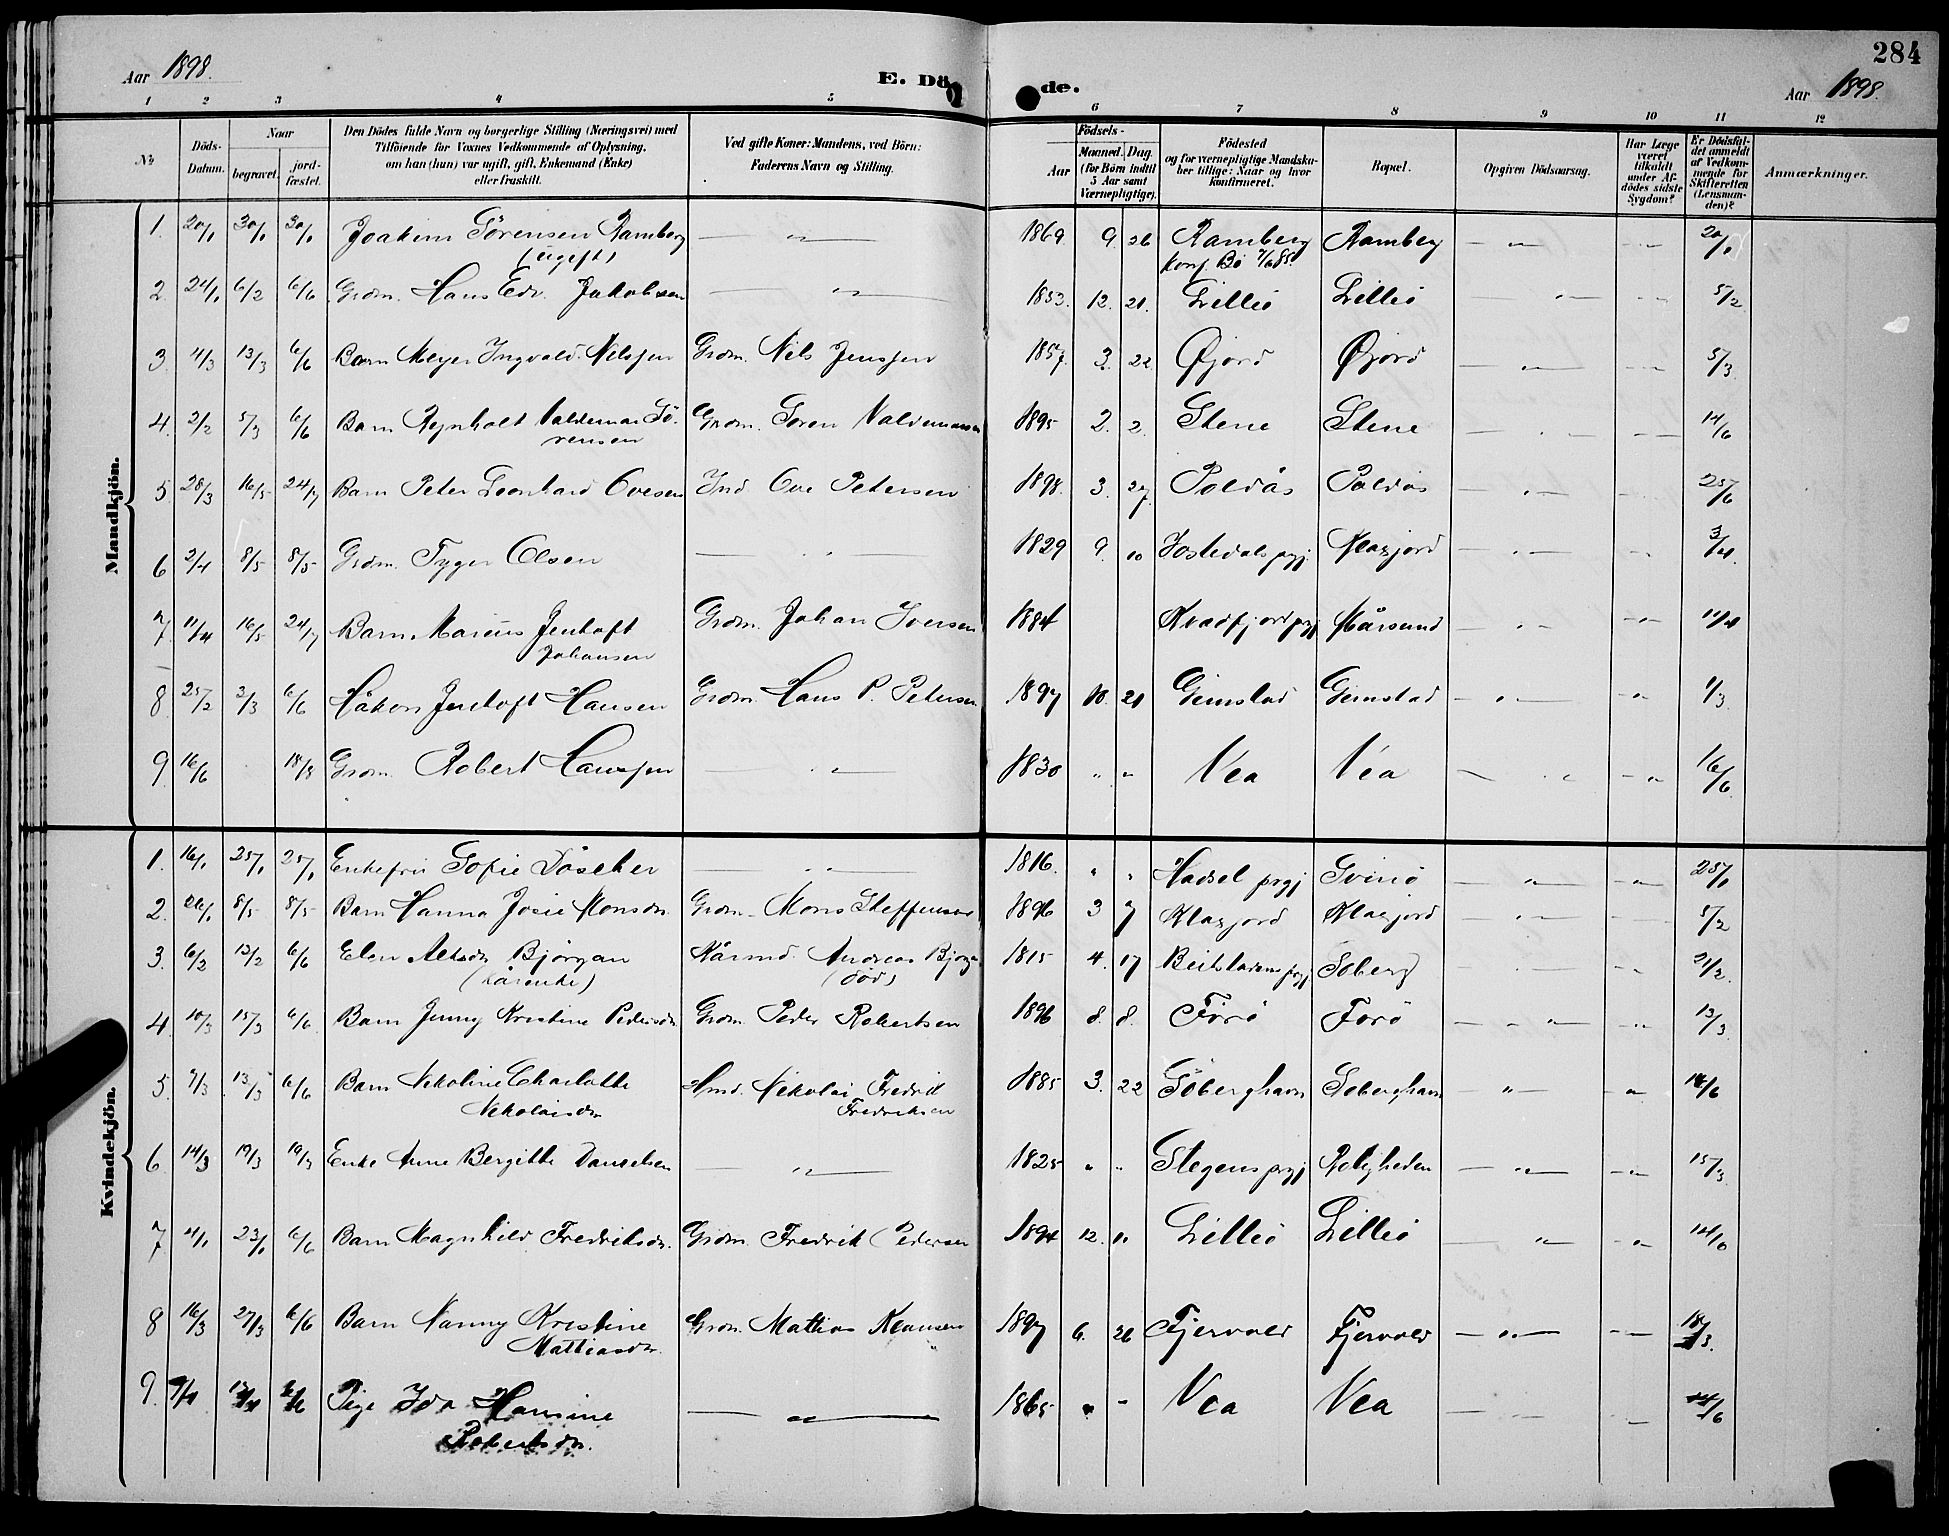 284
Aar 1898.
E. Dö
de.
Aar 1898.
1 2 3 4 5 6 7 8 9 10 11 12
No
Döds-
Datum.
Naar
begravet.
jord-
fæstet.
Den Dödes fulde Navn og borgerlige Stilling (Næringsvei) med
Tilföiende for Voxnes Vedkommende af Oplysning,
om han (hun) var ugift, gift, Enkemand (Enke)
eller fraskilt.
Ved gifte Koner: Mandens, ved Börn:
Faderens Navn og Stilling.
Födsels-
Aar
Maaned.
Dag.
(for Börn indtil
5 Aar samt
Værnepligtige).
Födested
og for værnepligtige Mandska-
ber tillige: Naar og hvor
konfirmeret.
Bopæl.
Opgiven Dödsaarsag.
Har Læge
været
tilkaldt
under Af-
dödes sidste
Sygdom?
Er Dödsfal-
det anmeldt
af Vedkom-
mende for
Skifteretten
(Lensman-
den)?
Anmærkninger.
Mandkjön.
1. 20/1 30/1 30/1 Joakim Sörensen Ramberg — " — 1869 9 26 Ramberg Ramberg — " — — " — 20/1
(ugift) konf. Bö 7/6 85.
2. 24/1 6/2 6/6 Grdm. Hans Edv. Jakobsen — " — 1853. 12. 21. Lilleö Lilleö — " — — " — 5/2
3. 4/3 13/3 6/6 Barn Meyer Ingvald Nilssen Grdm. Nils Jenssen 1857. 3. 22. Öjord Öjord — " — — " — 5/3
4. 2/2 5/3 6/6 Barn Reynholt Valdemar Sö- Grdm. Sören Valdemarsen 1895 2. 2. Stene Stene — " — — " — 14/6
rensen
5 28/3 16/5 24/7 Barn Peter Leonhard Ovesen Ind. Ove Petersen 1898. 3. 27. Poldås Poldås — " — 25/6
6 2/4 8/5 8/5 Grdm. Tyger Olsen — " — 1829 9. 10 Jostedals prgj. Klaxjord — " — — " — 3/4
7. 11/4 16/5 24/7 Barn Marius Jentoft Grdm. Johan Iversen 1884 Kvædfjord prgj Mårsund — " — — " — 11/4
Johansen
8 25/2 3/3 6/6 Håkon Jentoft Hansen Grdm. Hans P. Petersen 1897 10. 21 Gimstad Gimstad — " — — " 1/3
9 16/6 18/8 Grdm. Robert Hanssen — " — 1830 " " Vea Vea — " — " 16/6
Kvindekjön.
1. 16/1 25/1 25/1 Enkefru Sofie Döscher — " — 1816. " " Hadsel prgj Svinö — " — — " 25/1
2. 26/1 8/5 8/5 Barn Hanna Josie Monsdr. Grdm. Mons Steffensen 1896 3 7 Klaxjord Klaxjord — " — — " 5/2
3. 6/2 13/2 6/6 Elen Aletsdr Björgan Kårmd. Andreas Björgan 1815 4. 17 Beitstadens prgj Söberg — " — — " 21/2
(kårenke) (död)
4 10/3 15/3 6/6 Barn Jenny Kristine Pedersdr. Grdm. Peder Robertsen 1896 8. 8. Förö Förö — " — — " 13/3
5. 7/3 13/3 6/6 Barn Nikoline Charlotte Hmd. Nikolai Fredrik 1885 3. 22 Söberghavn Söberghavn — " — " 14/6
Nikolaisdr. Fredriksen
6 14/3 19/3 19/3 Enke Anne Bergitte Danielsen — " — 1825 " " Stegens prgj Roligheden — " — — " 15/3
7 4/1 23/1 6/6 Barn Magnhild Fredriksdr. Grdm. Fredrik Pedersen 1894 12. 11. Lilleö Lilleö — " — " 14/6
8 16/3 27/3 6/6 Barn Nanny Kristine Grdm. Mathias Klausen 1897 6. 26 Fjervold Fjervold — " — — " 18/3.
Mathiasdr.
9. Pige Ida Hansine — " — 1865 " " Vea Vea — " — — " — 14/6
Robertsdr.